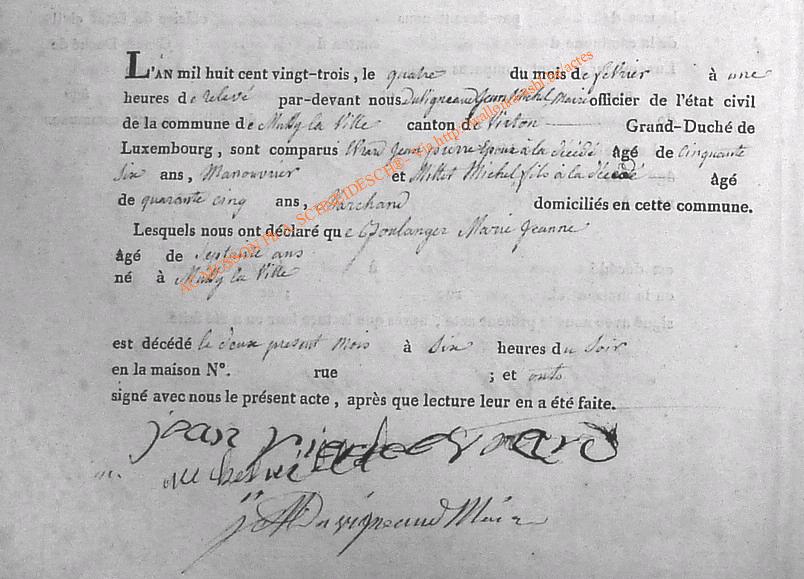 L'AN mil huit cent vingt-trois, le quatre du mois de fevrier à une
heures de relevé par-devant nous Duvigneaud Jean Michel Maire officier de l'état civil
de la commune de Mussy la Ville canton de Virton Grand-Duché de
Luxembourg, sont comparus Evrard Jean pierre Epoux à la décédé Agé de Cinquante
Six ans, Manouvrier et Mittet Michel, fils à la décédé Agé
de quarante cinq ans, Marchand domiciliés en cette commune.
Lesquels nous ont déclaré que Boulanger Marie Jeanne
Agé de Septante ans
né à Mussy la Ville
est décédé le deux present mois à Six heures du Soir
en la maison N°. rue ; et onts
signé avec nous le présent acte, après que lecture leur en a été faite.
jean
jM Duvigneaud Maire